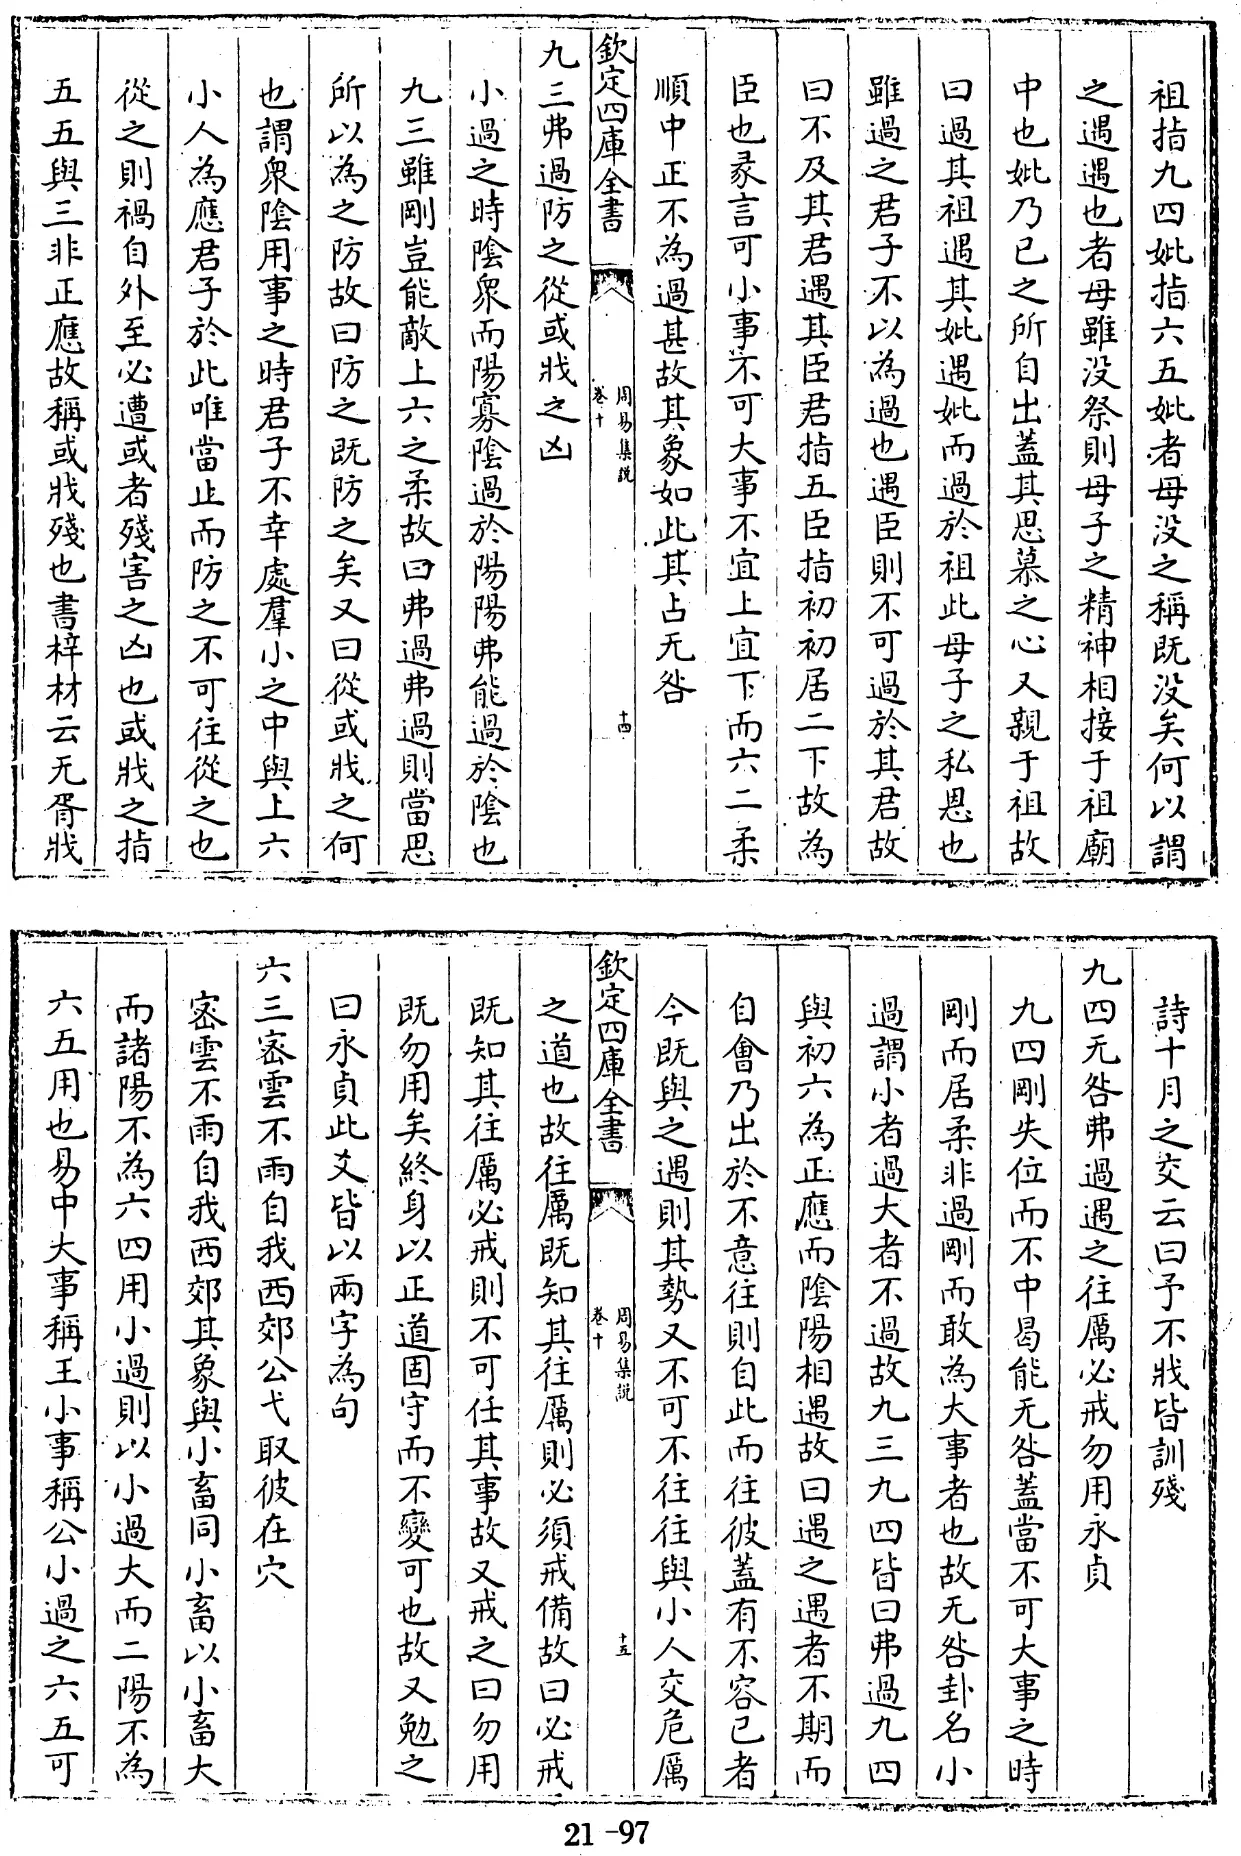 祖指九四妣指六五妣者母没之稱既没矣何以謂
之遇遇也者母雖没祭則母子之精神相接于祖廟
中也妣乃已之所自出蓋其思慕之心又親于祖故
曰過其祖遇其妣遇妣而過於祖此母子之私恩也
雖過之君子不以為過也遇臣則不可過於其君故
曰不及其君遇其臣君指五臣指初初居二下故為
臣也彖言可小事不可大事不宜上宜下而六二柔
順中正不為過甚故其象如此其占无咎
欽定四庫全書
周易集説
卷十
十四
九三弗過防之從或戕之凶
小過之時陰衆而陽寡陰過於陽陽弗能過於陰也
九三雖剛豈能敵上六之柔故曰弗過弗過則當思
所以為之防故曰防之既防之矣又曰從或戕之何
也謂衆陰用事之時君子不幸處羣小之中與上六
小人為應君子於此唯當止而防之不可往從之也
從之則禍自外至必遭或者殘害之凶也或戕之指
五五與三非正應故稱或戕殘也書梓材云无胥戕
詩十月之交云曰予不戕皆訓殘
九四无咎弗過遇之往厲必戒勿用永貞
九四剛失位而不中曷能无咎蓋當不可大事之時
剛而居柔非過剛而敢為大事者也故无咎卦名小
過謂小者過大者不過故九三九四皆曰弗過九四
與初六為正應而陰陽相遇故曰遇之遇者不期而
自會乃出於不意往則自此而往彼蓋有不容已者
今既與之遇則其勢又不可不往往與小人交危厲
欽定四庫全書
周易集説
卷十
十五
之道也故往厲既知其往厲則必須戒備故曰必戒
既知其往厲必戒則不可任其事故又戒之曰勿用
既勿用矣終身以正道固守而不變可也故又勉之
曰永貞此爻皆以兩字為句
六三密雲不雨自我西郊公弋取彼在穴
密雲不雨自我西郊其象與小畜同小畜以小畜大
而諸陽不為六四用小過則以小過大而二陽不為
六五用也易中大事稱王小事稱公小過之六五可
21-97